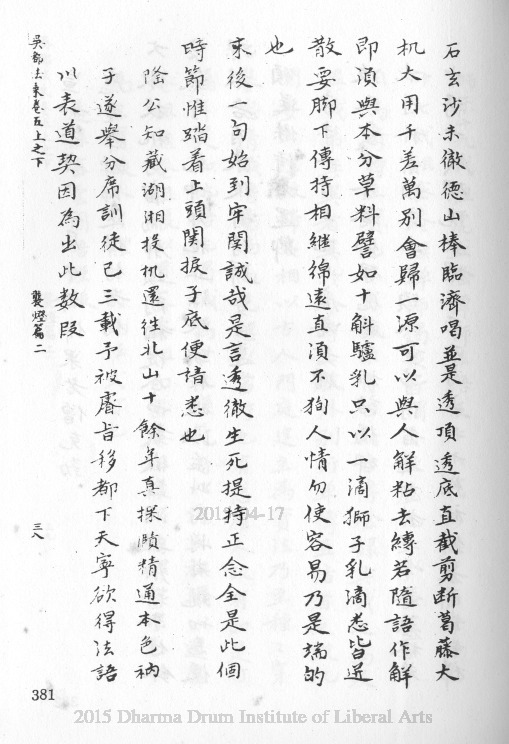 石玄沙未徹德山棒臨濟喝並是透頂透底直截剪斷葛藤大
机大用千差萬別會歸一源可以與人解粘去縛若隨語作解
即須與本分草料譬如十斛驢乳只以一滴獅子乳滴悉皆迸
散要脚下傳持相繼綿遠直須不狥人情勿使容易乃是端的
也
末後一句始到牢関誠哉是言透徹生死提持正念全是此個
時節惟踏着上頭関捩子底便請悉也
隆公知藏湖湘投机還往北山十餘年真探賾精通本色衲
子遂舉分席訓徒已三載予被睿旨移都下天寧欲得法語
以表道契因為出此数段
吳都法乘卷五上之下
襲燈篇二
三八
381
2015-04-17
2015 Dharma Drum Institute of Liberal Arts